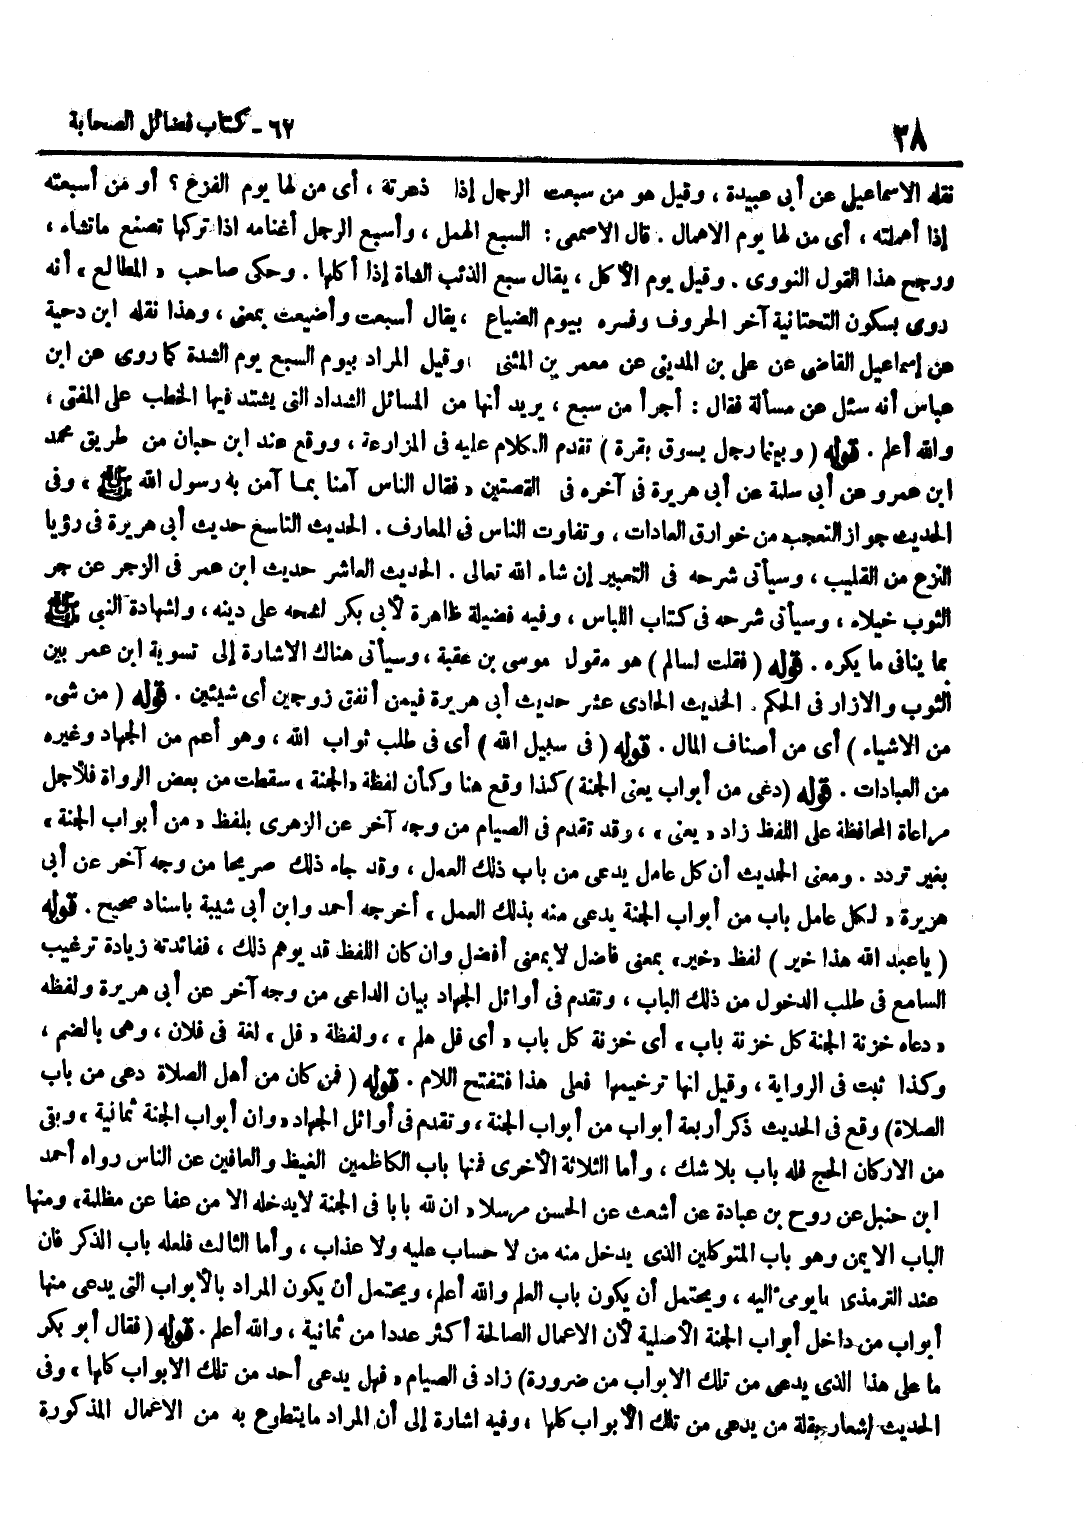 ٣٨
٦٢ - كتاب فضائل الصحابة
نقله الاسماعيلى عن أبى عبيدة ، وقيل هو من سبعت الرجل إذا ذعرته ، أى من لها يوم الفزع ؟ أو من أسبعته
إذا أهملته ، أى من لها يوم الاهمال . قال الاصمعى : السبع الهمل ، وأسبع الرجل أغنامه اذا تركها تصنع ماتشاء ،
ورجح هذا القول النووى . وقيل يوم الأكل ، يقال سبع الذئب الشاة إذا أكلها . وحكى صاحب « المطالع » أنه
روى بسكون التحتانية آخر الحروف وفسره بيوم الضياع ، يقال أسبعت وأضيعت بمعنى ، وهذا نقله ابن دحية
عن إسماعيل القاضى عن على بن المدينى عن معمر بن المثنى ، وقيل المراد بيوم السبع يوم الشدة كما روى عن ابن
عباس أنه سئل عن مسألة فقال : أجرأ من سبع ، يريد أنها من المسائل الشداد التى يشتد فيها الخطب على المفتى ،
والله أعلم . قوله ( وبينما رجل يسوق بقرة ) تقدم الكلام عليه فى المزارعة ، ووقع عند ابن حبان من طريق محمد
ابن عمرو عن أبى سلمة عن أبى هريرة فى آخره فى القصتين « فقال الناس آمنا بما آمن به رسول الله ﷺ ، وفى
الحديث جواز التعجب من خوارق العادات ، وتفاوت الناس فى المعارف . الحديث التاسع حديث أبى هريرة فى رؤيا
النزع من القليب ، وسيأتى شرحه فى التعبير إن شاء الله تعالى . الحديث العاشر حديث ابن عمر فى الزجر عن جر
الثوب خيلاء ، وسيأتى شرحه فى كتاب اللباس ، وفيه فضيلة ظاهرة لأبى بكر لشحه على دينه ، ولشهادة النبى ﷺ
بما ينافى ما يكره . قوله ( فقلت لسالم ) هو مقول موسى بن عقبة ، وسيأتى هناك الاشارة إلى تسوية ابن عمر بين
الثوب والازار فى الحكم . الحديث الحادى عشر حديث أبى هريرة فيمن أنفق زوجين أى شيئين . قوله ( من شىء
من الاشياء ) أى من أصناف المال . قوله ( فى سبيل الله ) أى فى طلب ثواب الله ، وهو أعم من الجهاد وغيره
من العبادات . قوله ( دعى من أبواب يعنى الجنة ) كذا وقع هنا وكأن لفظة « الجنة » سقطت من بعض الرواة فلأجل
مراعاة المحافظة على اللفظ زاد « يعنى » ، وقد تقدم فى الصيام من وجه آخر عن الزهرى بلفظ « من أبواب الجنة »
بغير تردد . ومعنى الحديث أن كل عامل يدعى من باب ذلك العمل ، وقد جاء ذلك صريحا من وجه آخر عن أبى
هريرة « لكل عامل باب من أبواب الجنة يدعى منه بذلك العمل » أخرجه أحمد وابن أبى شيبة باسناد صحيح . قوله
( ياعبد الله هذا خير ) لفظ « خير » بمعنى فاضل لا بمعنى أفضل وان كان اللفظ قد يوهم ذلك ، ففائدته زيادة ترغيب
السامع فى طلب الدخول من ذلك الباب ، وتقدم فى أوائل الجهاد بيان الداعى من وجه آخر عن أبى هريرة ولفظه
« دعاه خزنة الجنة كل خزنة باب » أى خزنة كل باب « أى فل هلم » ، ولفظة « فل » لغة فى فلان ، وهى بالضم ،
وكذا ثبت فى الرواية ، وقيل انها ترخيمها فعلى هذا فتفتح اللام . قوله ( فمن كان من أهل الصلاة دعى من باب
الصلاة ) وقع فى الحديث ذكر أربعة أبواب من أبواب الجنة ، وتقدم فى أوائل الجهاد « وان أبواب الجنة ثمانية ، وبقى
من الاركان الحج فله باب بلا شك ، وأما الثلاثة الأخرى فمنها باب الكاظمين الغيظ والعافين عن الناس رواه أحمد
ابن حنبل عن روح بن عبادة عن أشعث عن الحسن مرسلا « ان لله بابا فى الجنة لايدخله الا من عفا عن مظلمة » ومنها
الباب الايمن وهو باب المتوكلين الذى يدخل منه من لا حساب عليه ولا عذاب ، وأما الثالث فلعله باب الذكر فان
عند الترمذى مايومىء اليه ، ويحتمل أن يكون باب العلم والله أعلم ، ويحتمل أن يكون المراد بالأبواب التى يدعى منها
أبواب من داخل أبواب الجنة الأصلية لأن الاعمال الصالحة أكثر عددا من ثمانية ، والله أعلم . قوله ( فقال أبو بكر
ما على هذا الذى يدعى من تلك الابواب من ضرورة ) زاد فى الصيام « فهل يدعى أحد من تلك الابواب كلها » وفى
الحديث إشعار بقلة من يدعى من تلك الأبواب كلها ، وفيه اشارة إلى أن المراد مايتطوع به من الاعمال المذكورة